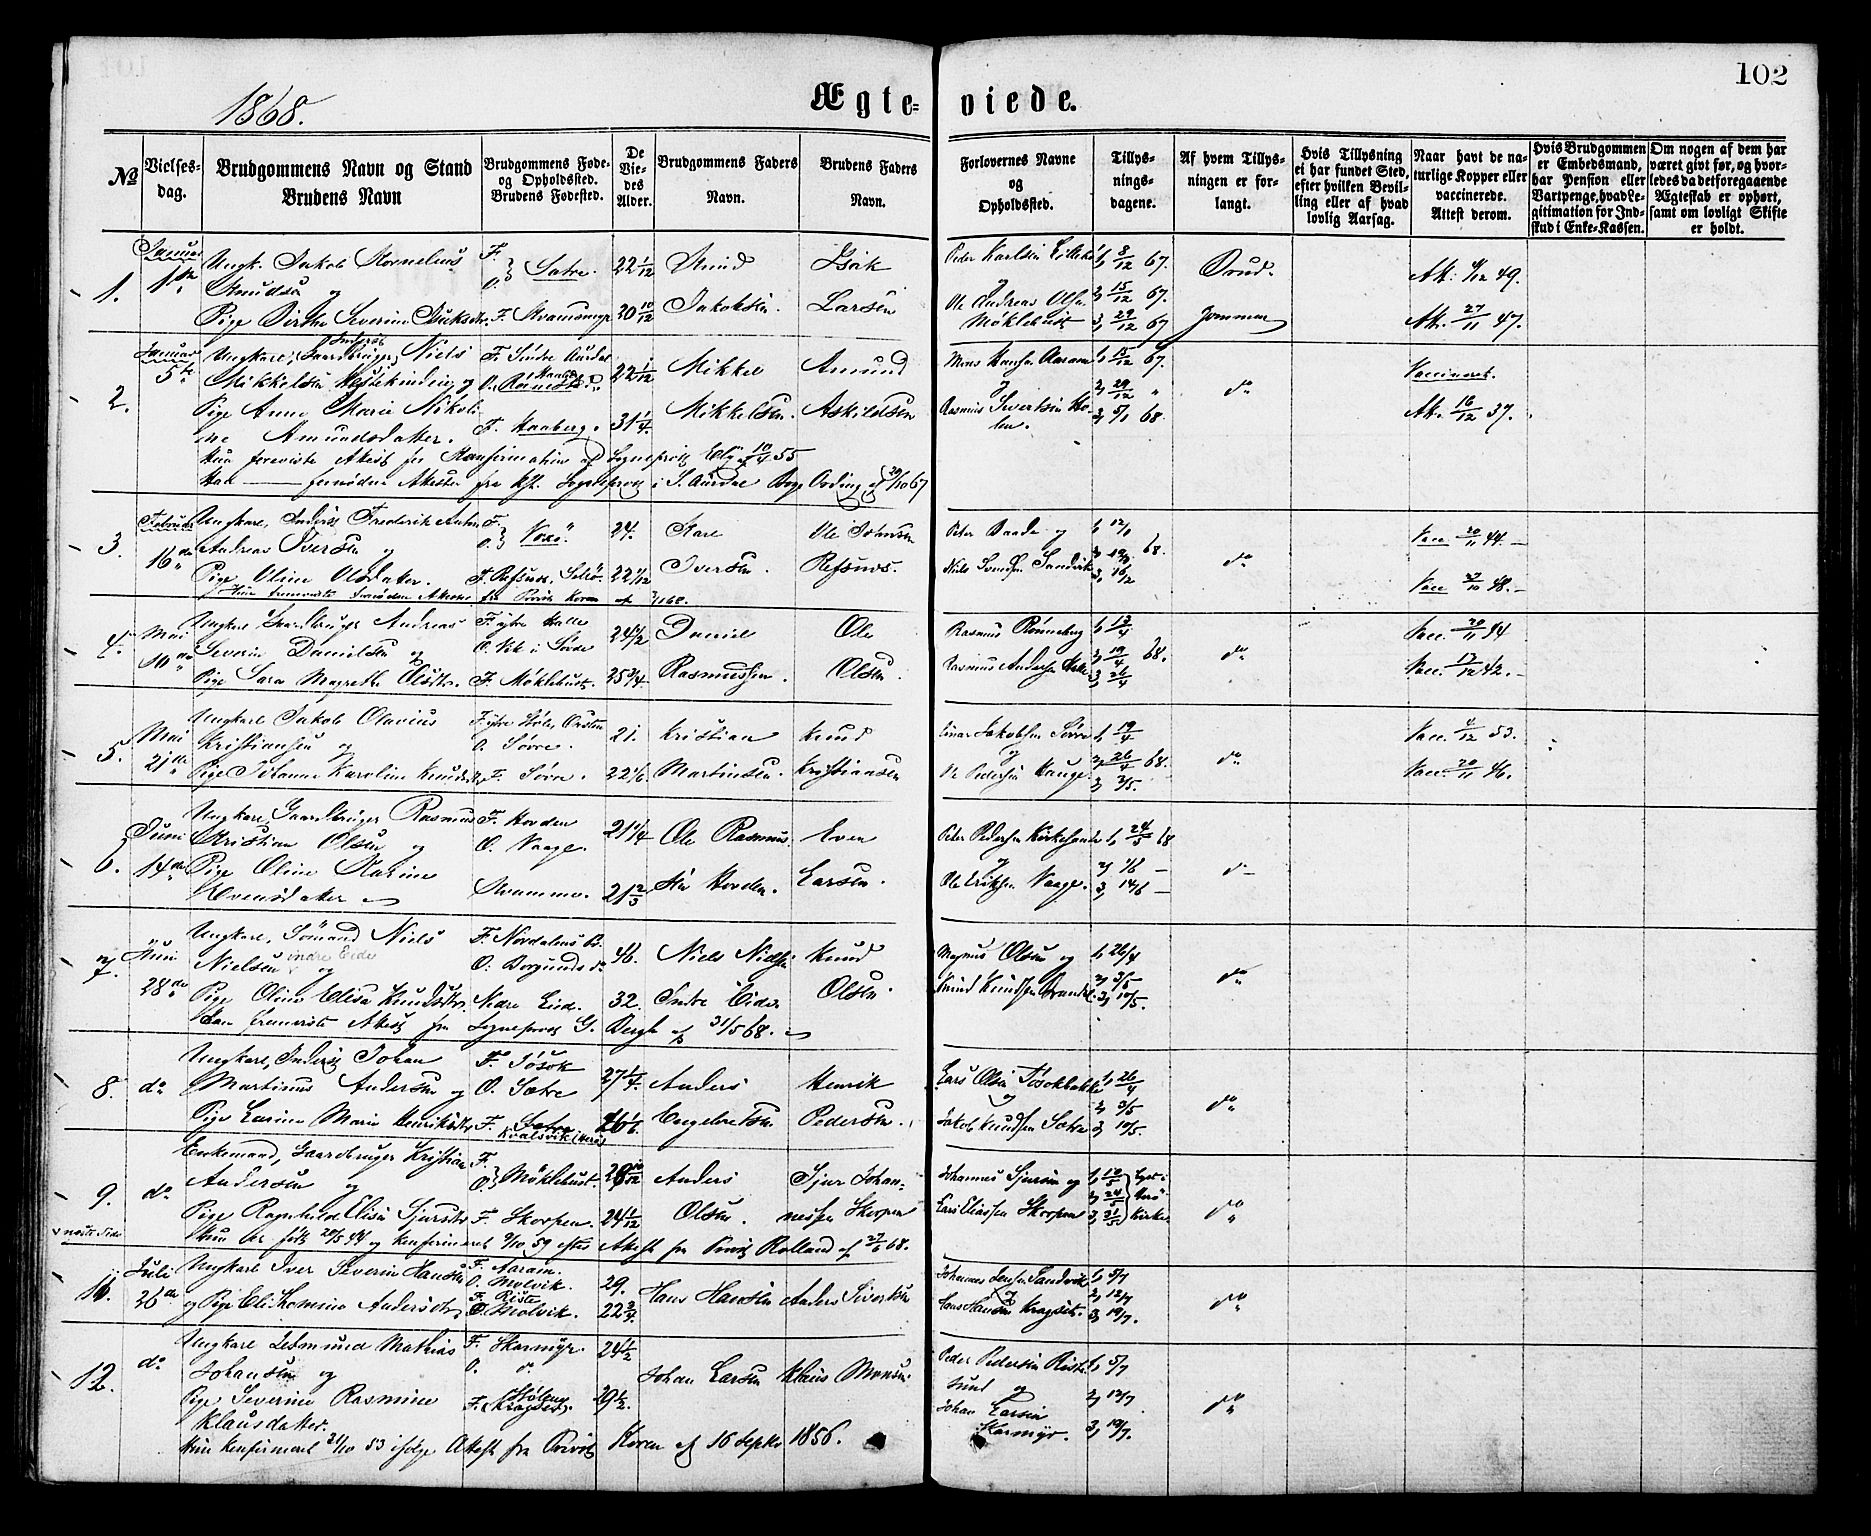 102
1868.
Ægte= viede.
No
Vielses-
dag.
Brudgommens Navn og Stand
Brudens Navn
Brudgommens Føde-
og Opholdssted.
Brudens Fødested.
De
Vie-
des
Alder.
Brudgommens Faders
Navn.
Brudens Faders
Navn.
Forlovernes Navne
og
Opholdssted.
Tillys-
nings-
dagene.
Af hvem Tillys-
ningen er for-
langt.
Hvis Tillysning
ei har fundet Sted,
efter hvilken Bevil-
ling eller af hvad
lovlig Aarsag.
Naar havt de na-
turlige Kopper eller
vaccinerede.
Attest derom.
Hvis Brudgommen
er Embedsmand,
har Pension eller
Vartpenge, hvad Le-
gitimation for Ind-
skud i Enke-Kassen.
Om nogen af dem har
været givt før, og hvor-
ledes da det foregaaende
Ægteskab er ophørt,
samt om lovligt Skifte
er holdt.
1. Januar 1ste Ungk. Jakob Kornelius F. O. Satre. 22 1/12 Knud Isak Peder Karlsen 1, 8/12 67. Brud- Att. 49.
Knudsen og
Pige Severine Isaksdtr. F. Kvamsmyr 20 10/12 Jakobsen. Larsen Ole Andreas Olsen Møklebust 2, 15/12 67. 3, 29/12 67 gommen Att. 27/11 47.
2. Januar 5te Ungkarl, Gaardbruger Niels F. Søndre Aurdal 22 1/12 Mikkel Amund Mons Hansen Aaram 1, 15/12 67. do Vaccineret.
Mikkelsen og O.
Pige Anne Marie Nikoli- F. Haaberg. 31 1/4. Mikkelsen. Askildsen Rasmus Sivertsen 2, 29/12 " 3, 5/1 68. Att. 16/12 37.
ne Amundsdatter.
Hun foreviste Attest for Konfirmation af Sogneprest 10/4 55
Han — fornøden Attester fra Sogneprest i S. Aurdal 67
3. Februar 16de Ungkarl, Inderst Frederik Anton F. O. Voxø. 24. Kare Ole Johnsen Peter Raade og 1, 12/1 do Vacc 20/11 44.
Andreas Iversen og
Pige Oline Olsdatter. F. Refsnes, Selø. 22 1/12 Iversen. Refsnes. Niels Svendsen Sandvik 68. 3, 16/2 Vacc 27/10 48.
Hun foreviste fornøden Attester fra Provst Koren af 68.
4. Mai 10de Ungkarl Gaardbruger Andreas F. ytre Halle Daniel Ole Rasmus Rønneberg 1, 13/4 do Vacc. 20/11 44
Severin Danielsen og O. Vik i Søvde
Pige Sara Magrethe Olsdtr. F. Møklebust. 25 3/4. Rasmussen. Olsen. Rasmus Andersen 2, 19/4 68. 3, 26/4 Vacc. 17/12 42.
5. Mai 21de Ungkarl Jakob Olavius F. ytre Ørsten 21. Kristian Knud Einar Jakobsen Sørve 1, 19/4 do Vacc. 4/12 53.
Kristiansen og O. Sørve.
Pige Johanne Karoline Knudsdtr. F. Sørve. 22 1/6. Martinsen. Kristiansen Pedersen Hauge. 2, 26/4 68. 3, 3/5. Vacc. 20/11 46.
6. Juni 14de Ungkarl, Gaardbruger Rasmus F. Hovden 21 1/4 Ole Rasmus- Even Peter Pedersen Kirkesande 1, 24/5 68 do
Kristian Olsen og O. Vaage.
Pige Oline Karine Kvamme. 21 2/3 Hovden. Larsen. Ole Eriksen Vaage. 2, 1/6 — 3, 14/6 —
Evensdatter
7. Juni 28de Ungkarl, Sømand Niels F. Nordalens P. 46. Niels Nielsen Knud Magnus Olsen og 1, 26/4 do
Nielsen indre Eide og O. Borgunds do
Pige Oline Elisa Knudsdtr. Nedre Eide. 32. Indre Eide. Olsen Knud Knudsen 2, 3/5. 3, 10/5.
Han foreviste Attest fra Sogneprest G. Bergh af 31/5 68.
8. do Ungkarl, Inderst Johan F. Jøsok 27 1/4. Anders Henrik Lars Olsen Jøsokbakke 1, 26/4 do
Martinus Andersen og O. Sætre
Pige Larine Marie Henriksdtr. F. Sætre Kvalsvik (Herø) 26 1/6. Engebretsen Pedersen. Jakob Knudsen Sætre 2, 3/5 3, 10/5.
9. do Enkemand, Gaardbruger Kristian F. O. Møklebust. 29 10/12 Anders Sjur Johan- Johannes Sjursen og 1, 17/5 2, 24/5 3, 31/5 Lyst i Herø Kirke do
Andersen og
Pige Ragnhilde Elisa Sjursdtr. F. Skorpen. 24 1/12 Olsen. nessen Skorpen Lars Eliassen Skorpen
v næste Side Hun er født 20/5 44 og konfirmeret 9/10 59 efter Attest fra Provst Rolland af 27/6 68.
10. Juli 26de Ungkarl Iver Severin Hansen F. Aaram. O. Molvik. 29. Hans Hansen Anders Sivertsen Johannes Jensen Sandvik 1, 5/7 do
og Pige Eli Thomine Andersdtr. F. Riste O. Molvik. 22 3/4. Hans Hansen Kragset. 2, 12/7 3, 19/7.
12. do Ungkarl Lesmund Mathias F. Skarmyr. 24 1/2 Johan Larsen Klaus Monsen Peder Pedersen Riste- 1, 5/7 do
Johansen og O. do sund og
Pige Severine Rasmine F. Kragset. 29 1/2. Johan Larsen 2, 12/7
Klausdatter. Skarmyr. 3, 19/7.
Hun konfirmeret 53 ifølge Attest fra Provst Koren af 16 Septbr 1856.